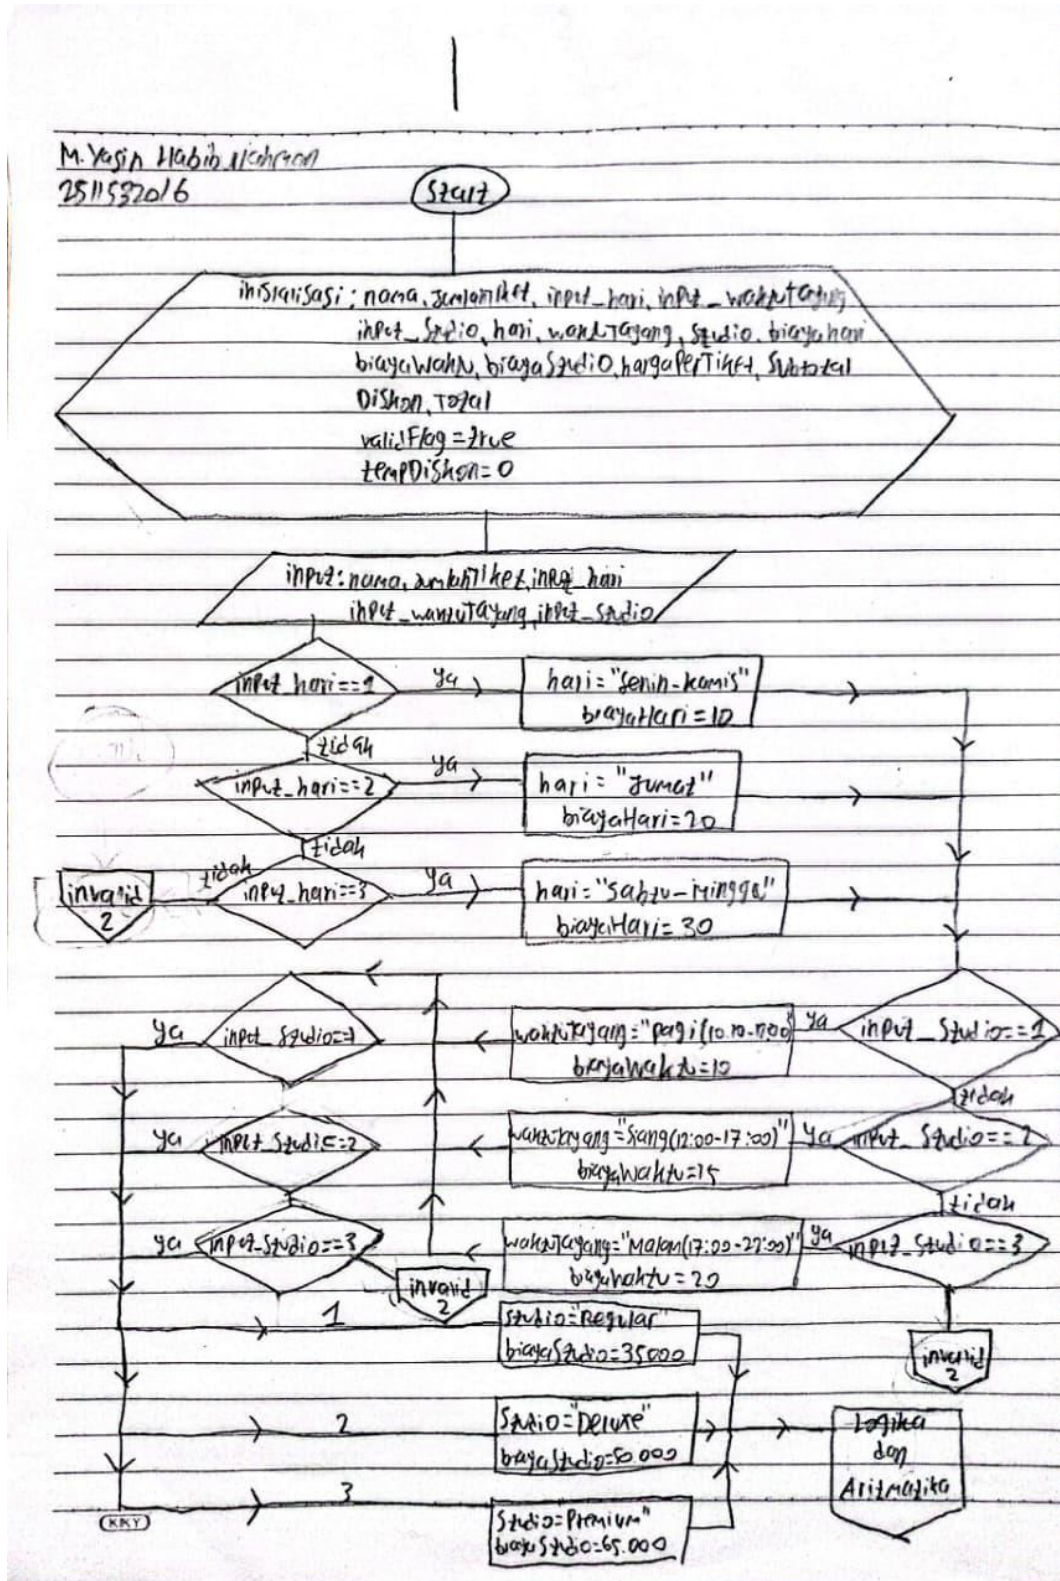 M. Yasin Habib
2511532016
Start
inisialisasi: nama, jumlahTiket, input_hari, input_waktuTayang
input_Studio, hari, waktuTayang, Studio, biayahari
biayaWaktu, biayaStudio, hargaPerTiket, Subtotal
Diskon, Total
validFlag = true
tempDiskon = 0
input: nama, jumlahTiket, input_hari
input_waktuTayang, input_Studio
input_hari==1
ya
hari = "Senin-kamis"
biayaHari = 10
tidak
input_hari==2
ya
hari = "Jumat"
biayaHari = 20
tidak
invalid
2
tidak
input_hari==3
ya
hari = "Sabtu-Minggu"
biayaHari = 30
ya
input_Studio==1
waktuTayang="pagi
biayaWaktu=10
ya
input_Studio==1
tidak
ya
input_Studio==2
waktuTayang="Siang(12:00-17:00)"
biayaWaktu=15
ya
input_Studio==2
tidak
ya
input_Studio==3
waktuTayang="Malam(17:00-22:00)"
biayaWaktu=20
ya
input_Studio==3
invalid
2
1
Studio="Regular"
biayaStudio=35000
invalid
2
2
Studio="Deluxe"
biayaStudio=50.000
Logika
dan
Aritmatika
3
Studio="Premium"
biayaStudio=65.000
KKY